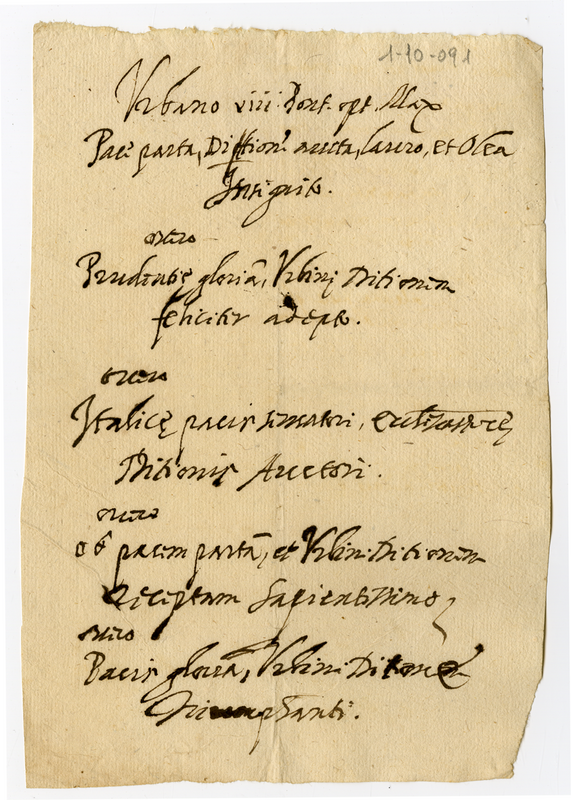 1-10-091
Urbano viii Pont. opt. Max
Pace parta, Ditione aucta, lauro, et Olea
Insignito.
overo
Prudentię gloria, Urbinę Ditionem
feliciter adepto.
overo
Italicę pacis firmatori, ecclesiasticę
Ditionis Auctori.
overo
ob pacem partā, et Urbini Ditionem
Receptam Sapientissimo
overo
Pacis gloria, Urbini Ditione
Triumphanti.